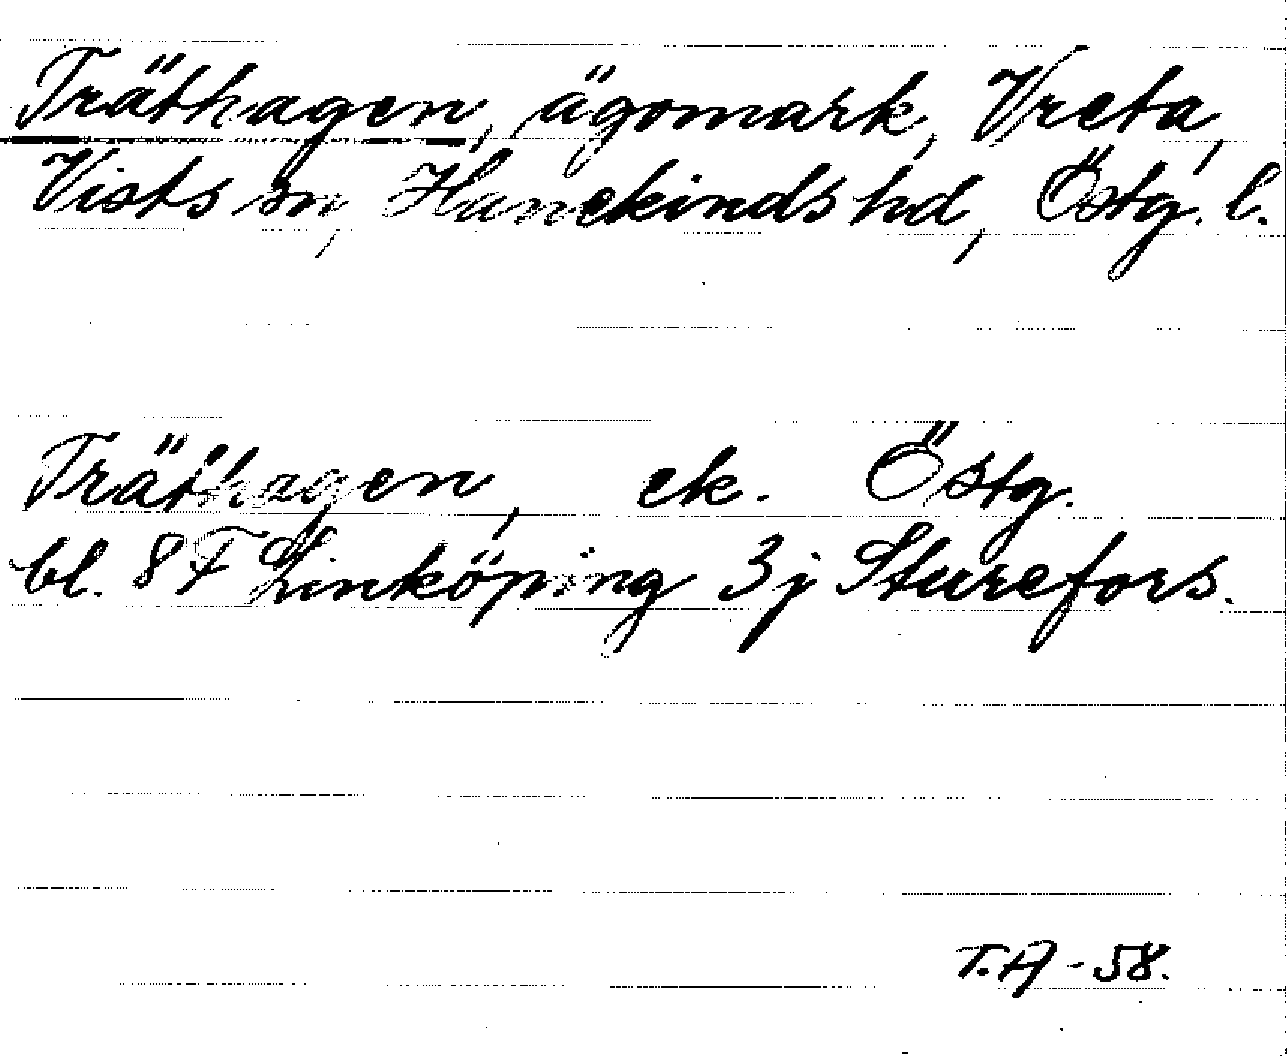 Träthagen, ägomark, Vreta,
Vists sn, Hanekinds hd, Östg. l.
Träthagen, ek. Östg.
bl. 8 F Linköping 3j Sturefors.
T.A - 58.